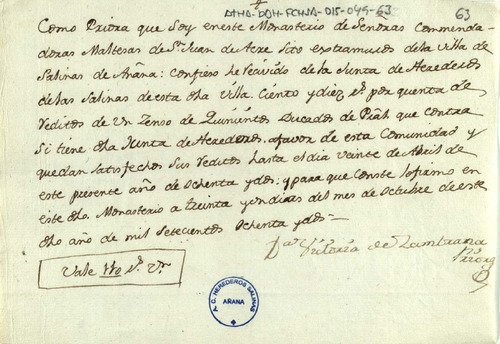 ATHA-DAH-FCHSA-015-045-63
63
Como Priora que Soy en este Monasterio de Señoras Commenda-
doras Maltesas de Sn. Juan de Acre Sito extramuros de la Villa de
Salinas de Añana: Confieso he recivido de la Junta de Herederos
de las Salinas de esta dha Villa Ciento y diez rs. por quenta de
reditos de un Zenso de Quinientos Ducados de Pral. que contra
Si tiene dha Junta de Herederos, afavor de esta Comunidad y
quedan Satisfechos Sus reditos hasta el dia veinte de Abril de
este presente año de ochenta ydos; y para que Conste lo firmo en
este dho. Monasterio a treinta yun dias del mes de octubre de este
dho año de mil Setecientos ochenta ydos=
Da. Vitoria de Zambrana
Priora
Vale 110 rs. vn.
A. C. HEREDEROS SALINAS
AÑANA